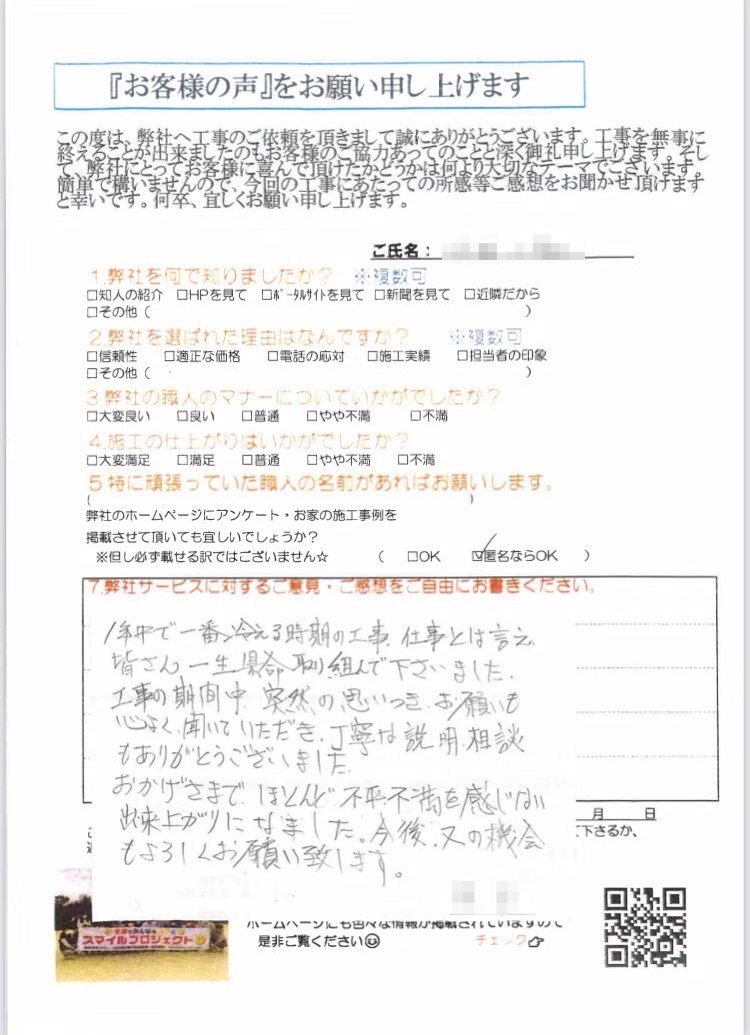 『お客様の声』をお願い申し上げます
この度は、弊社へ工事のご依頼を頂きまして誠にありがとうございます。工事を無事に
終えることが出来ましたのもお客様のご協力あってのことと深く御礼申し上げます。そし
て、弊社にとってお客様に喜んで頂けたかどうかは何より大切なテーマでございます。
簡単で構いませんので、今回の工事にあたっての所感等ご感想をお聞かせ頂けますと
幸いです。何卒、宜しくお願い申し上げます。
ご氏名：
1.弊社を何で知りましたか？ ※複数可
□知人の紹介 □HPを見て □ﾎﾟｰﾀﾙｻｲﾄを見て □新聞を見て □近隣だから
□その他（ ）
2.弊社を選ばれた理由はなんですか？ ※複数可
□信頼性 □適正な価格 □電話の応対 □施工実績 □担当者の印象
□その他（ ）
3.弊社の職人のマナーについていかがでしたか？
□大変良い □良い □普通 □やや不満 □不満
4.施工の仕上がりはいかがでしたか？
□大変満足 □満足 □普通 □やや不満 □不満
5.特に頑張っていた職人の名前があればお願いします。
（ ）
弊社のホームページにアンケート・お家の施工事例を
掲載させて頂いても宜しいでしょうか？
※但し必ず載せる訳ではございません☆ （ □OK ☑匿名ならOK ）
7.弊社サービスに対するご意見・ご感想をご自由にお書きください。
1年中で一番冷える時期の工事、仕事とは言え
皆さん一生懸命取り組んで下さいました。
工事の期間中、突然の思いつき、お願いも
心よく聞いていただき、丁寧な説明、相談
もありがとうございました。
おかげさまで、ほとんど不平不満を感じない
出来上がりになました。今後、又の機会
もよろしくお願い致します。
月 日
下さるか、
スマイルプロジェクト
ホームページにも色々な情報が掲載されていますので
是非ご覧ください☺ チェック☞